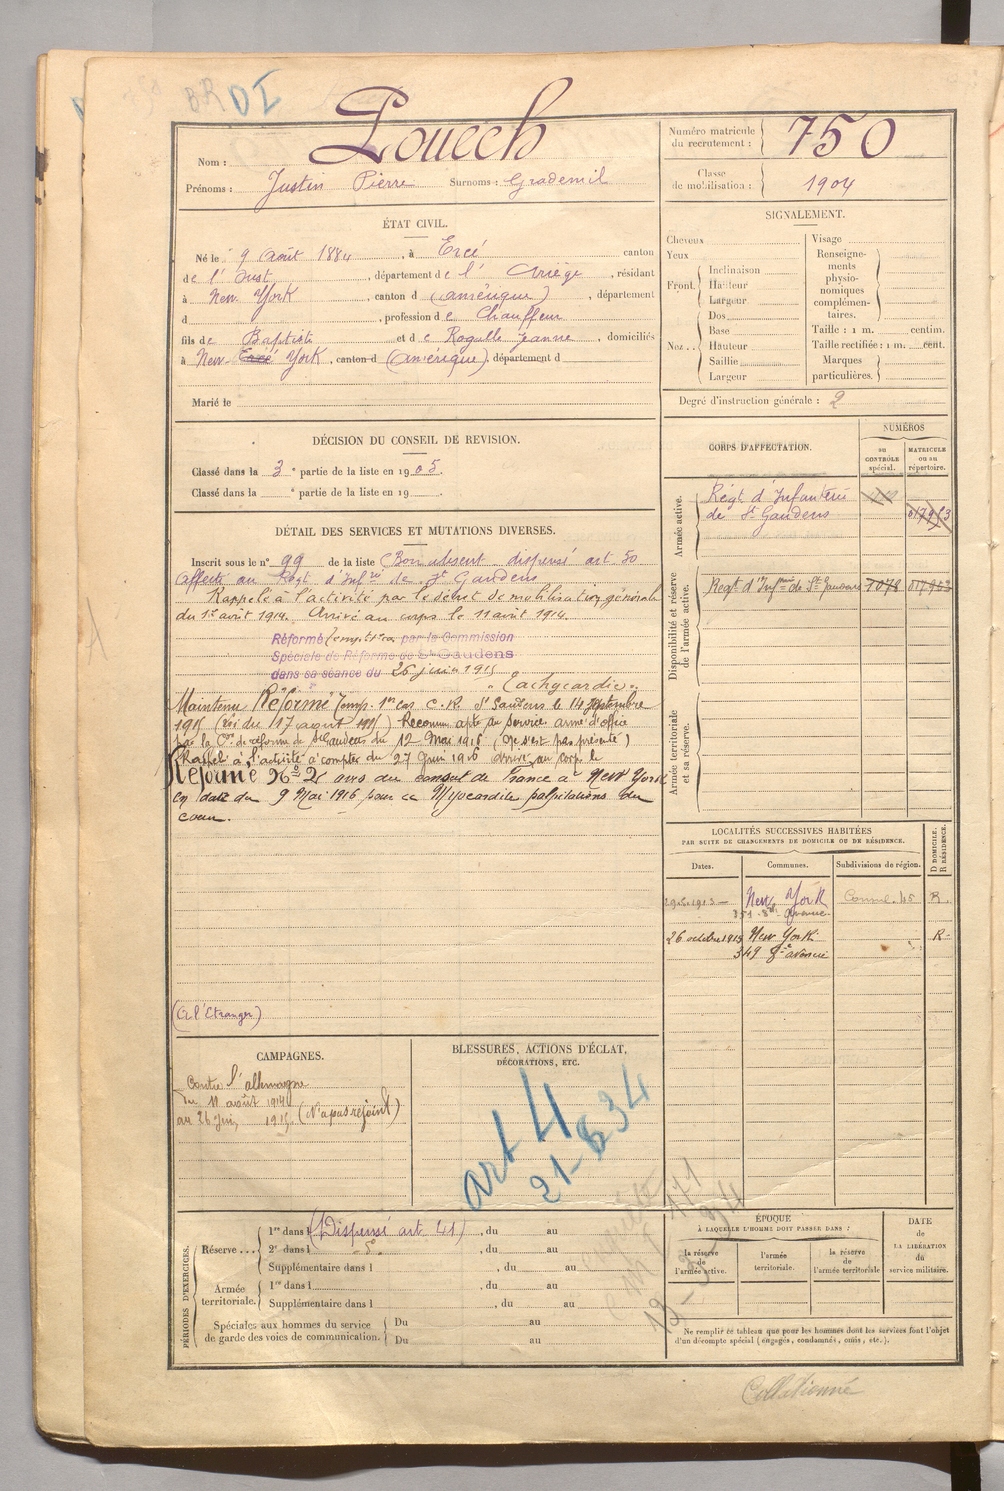 BR DI
Nom : Louech
Prénoms : Justin Pierre Surnoms : Grademil
Numéro matricule du recrutement : 750
Classe de mobilisation : 1904
ÉTAT CIVIL.
Né le 9 août 1884, à Ercé canton
de l' Oust, département de l' Ariège, résidant
à New York, canton d (amérique), département
d , profession de Chauffeur
fils de Baptiste et de Rogalle Jeanne, domiciliés
à New- Ercé York, canton d (amérique), département d
Marié le
DÉCISION DU CONSEIL DE REVISION.
Classé dans la 3e partie de la liste en 1905.
Classé dans la e partie de la liste en 19 .
DÉTAIL DES SERVICES ET MUTATIONS DIVERSES.
Inscrit sous le n° 99 de la liste (Bon absent dispensé art 50
affecté au Régt d'Infie de St Gaudens
Rappelé à l'activité par le décret de mobilisation générale
du 1er août 1914. Arrivé au corps le 11 août 1914.
Réformé temp par la Commission
Spéciale de Réforme de St Gaudens
dans sa séance du 26 juin 1915
"Tachycardie".
Maintenu Réformé Temp. 1er cas C.R. St Gaudens le 14 septembre
1915 (Loi du 17 août 1915) Reconnu apte au service armé d'office
par la Con de réforme de St Gaudens du 12 Mai 1916 (Ne s'est pas présenté)
Rappelé à l'activité à compter du 27 Juin 1916 arrivé au corps le
Réformé No 2 avis du consul de France à New York
en date du 9 Mai 1916 pour Myocardite palpitations du
coeur.
(à l'Etranger)
CAMPAGNES.
Contre l'allemagne
du 11 août 1914
au 26 Juin 1915. (N'a pas rejoint)
BLESSURES, ACTIONS D'ÉCLAT,
DÉCORATIONS, ETC.
art 4
PÉRIODES D'EXERCICES.
Réserve ... 1re dans l (Dispensé art. 41) , du au
2e dans l , du au
Supplémentaire dans l , du au
Armée territoriale. 1re dans l , du au
Supplémentaire dans l , du au
Spéciales aux hommes du service
de garde des voies de communication. Du au
Du au
SIGNALEMENT.
Cheveux
Yeux
Front. Inclinaison
Hauteur
Largeur
Nez .. Dos
Base
Hauteur
Saillie
Largeur
Visage
Renseignements physionomiques complémentaires.
Taille : 1 m. centim.
Taille rectifiée : 1 m. cent.
Marques particulières.
Degré d'instruction générale : 2
CORPS D'AFFECTATION.
NUMÉROS
au CONTRÔLE spécial.
MATRICULE ou au répertoire.
Armée active.
Régt d'Infanterie
de St Gaudens
Disponibilité et réserve de l'armée active.
Régt d'Infie de St Gaudens 7078
Armée territoriale et sa réserve.
LOCALITÉS SUCCESSIVES HABITÉES
PAR SUITE DE CHANGEMENTS DE DOMICILE OU DE RÉSIDENCE.
Dates. Communes. Subdivisions de région. D DOMICILE. R RÉSIDENCE.
New York R.
351 - 8e Avenue.
26 octobre 1915 New York R-
349 8e avenue
ÉPOQUE
À LAQUELLE L'HOMME DOIT PASSER DANS :
la réserve de l'armée active.
l'armée territoriale.
la réserve de l'armée territoriale
DATE DE LA LIBÉRATION du service militaire.
Ne remplir ce tableau que pour les hommes dont les services font l'objet
d'un décompte spécial (engagés, condamnés, omis, etc.).
Collationné